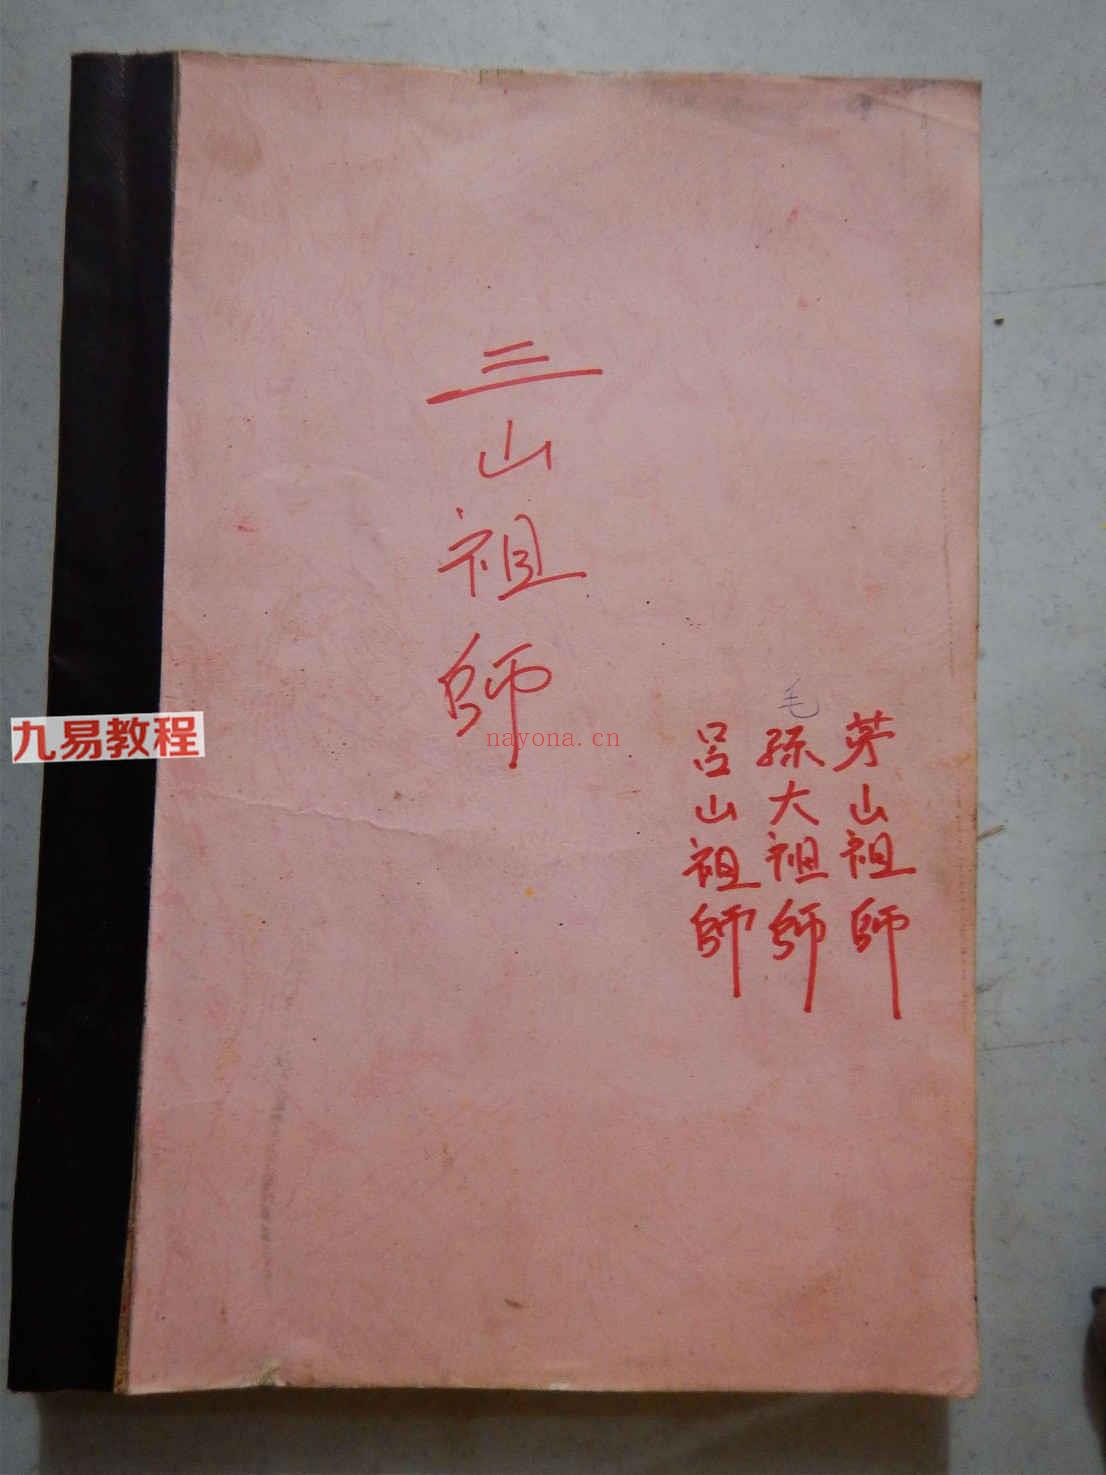 三山祖師
茅山祖師
毛
孫大祖師
呂山祖師
九易教程
nayona.cn